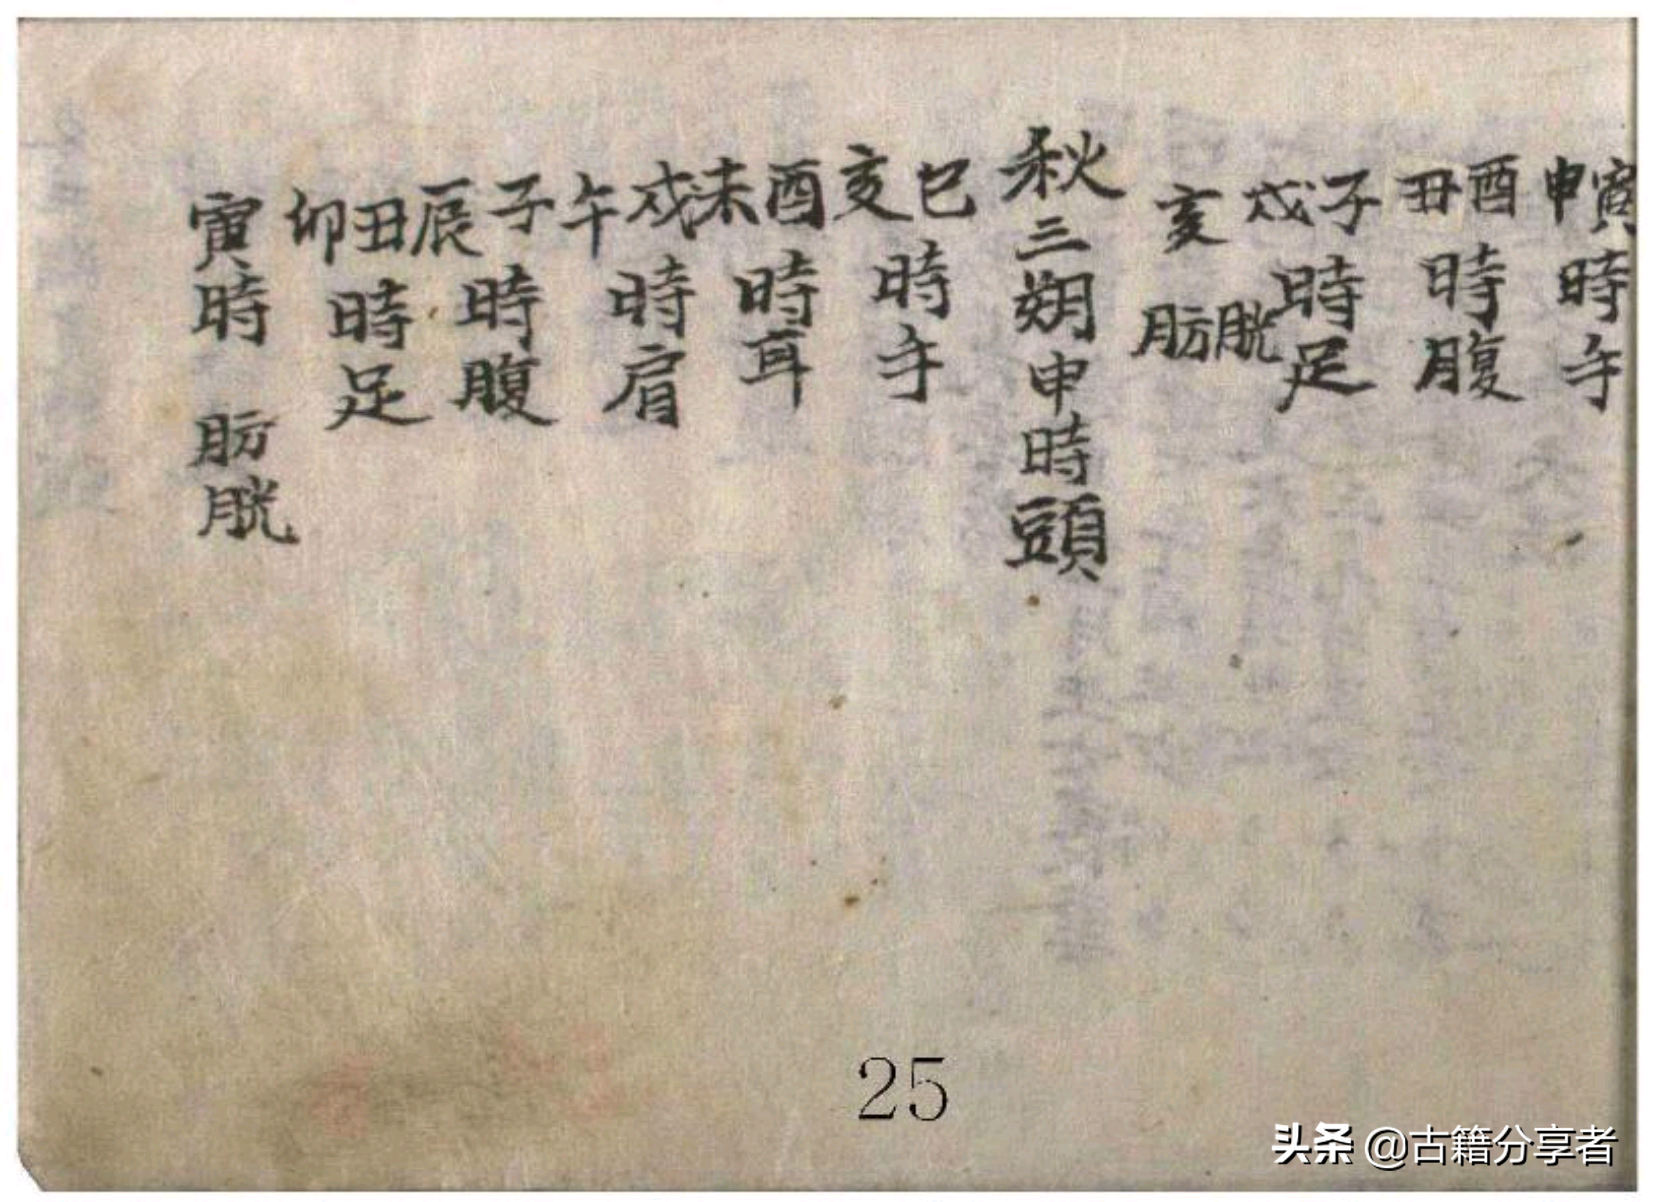 寅申時手
酉丑時腹
子戌時足
亥肪胱
秋三朔申時頭
巳亥時手
酉未時耳
戌午時肩
子辰時腹
丑卯時足
寅時 肪胱
25
头条 @古籍分享者